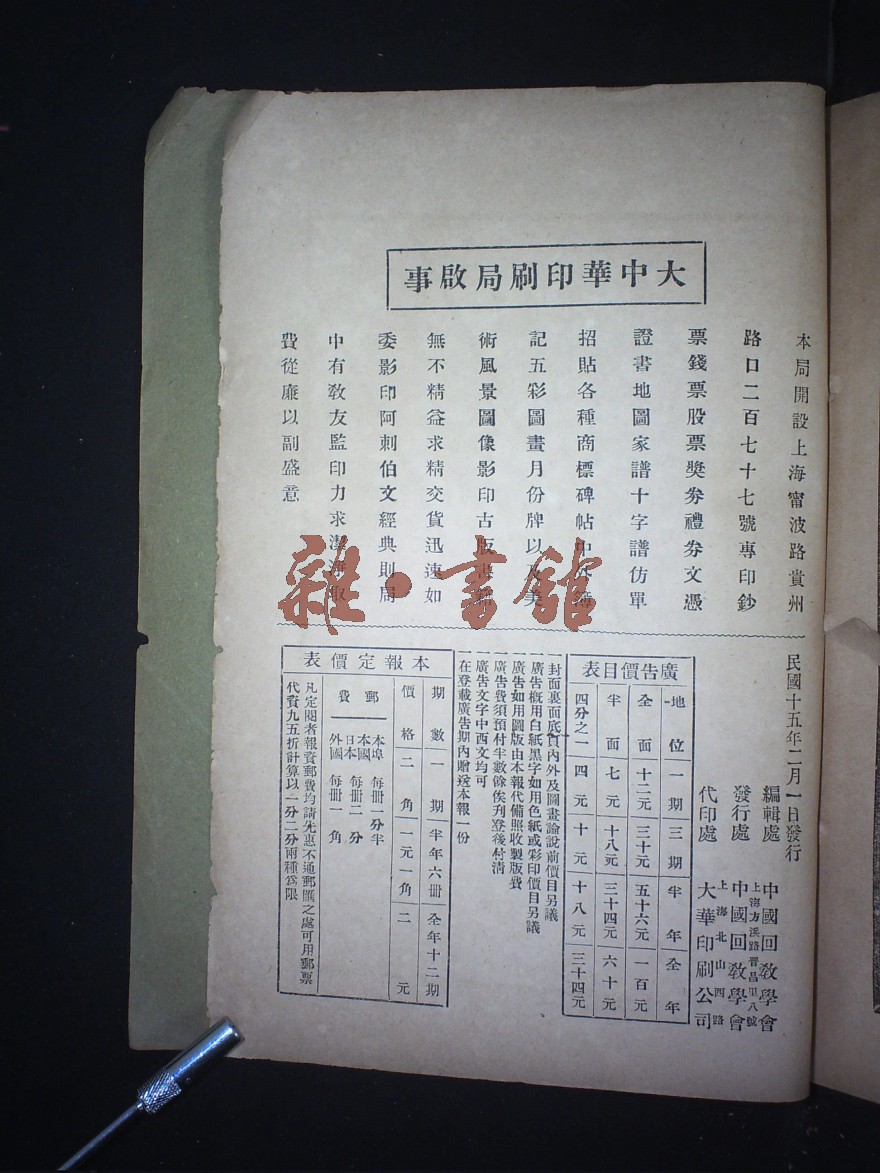 大中華印刷局啟事
本局開設上海甯波路貴州
路口二百七十七號專印鈔
票錢票股票獎券禮券文憑
證書地圖家譜十字譜仿單
招貼各種商標碑帖中外簿
記五彩圖畫月份牌以及美
術風景圖像影印古版書籍
無不精益求精交貨迅速如
委影印阿刺伯文經典則局
中有敎友監印力求潔淨取
費從廉以副盛意
民國十五年二月一日發行
編輯處 中國回敎學會
上海方浜路晋昌里八號
發行處 中國回敎學會
上海北山西路
代印處 大華印刷公司
廣告價目表
地位 一期 三期 半年 全年
全面 十二元 三十元 五十六元 一百元
半面 七元 十八元 三十四元 六十元
四分之一 四元 十元 十八元 三十四元
一封面裏面底頁內外及圖畫論說前價目另議
一廣告概用白紙黑字如用色紙或彩印價目另議
一廣告如用圖版由本報代備照收製版費
一廣告費須預付半數餘俟刋登後付淸
一廣告文字中西文均可
一在登載廣告期內贈送本報一份
本報定價表
期數 一期 半年六冊 全年十二期
價格 二角 一元一角 二元
郵費
本埠 每冊一分半
本國 日本 每冊二分
外國 每冊一角
凡定閱者報資郵費均請先惠不通郵匯之處可用郵票
代資九五折計算以一分二分兩種爲限
雜·書館